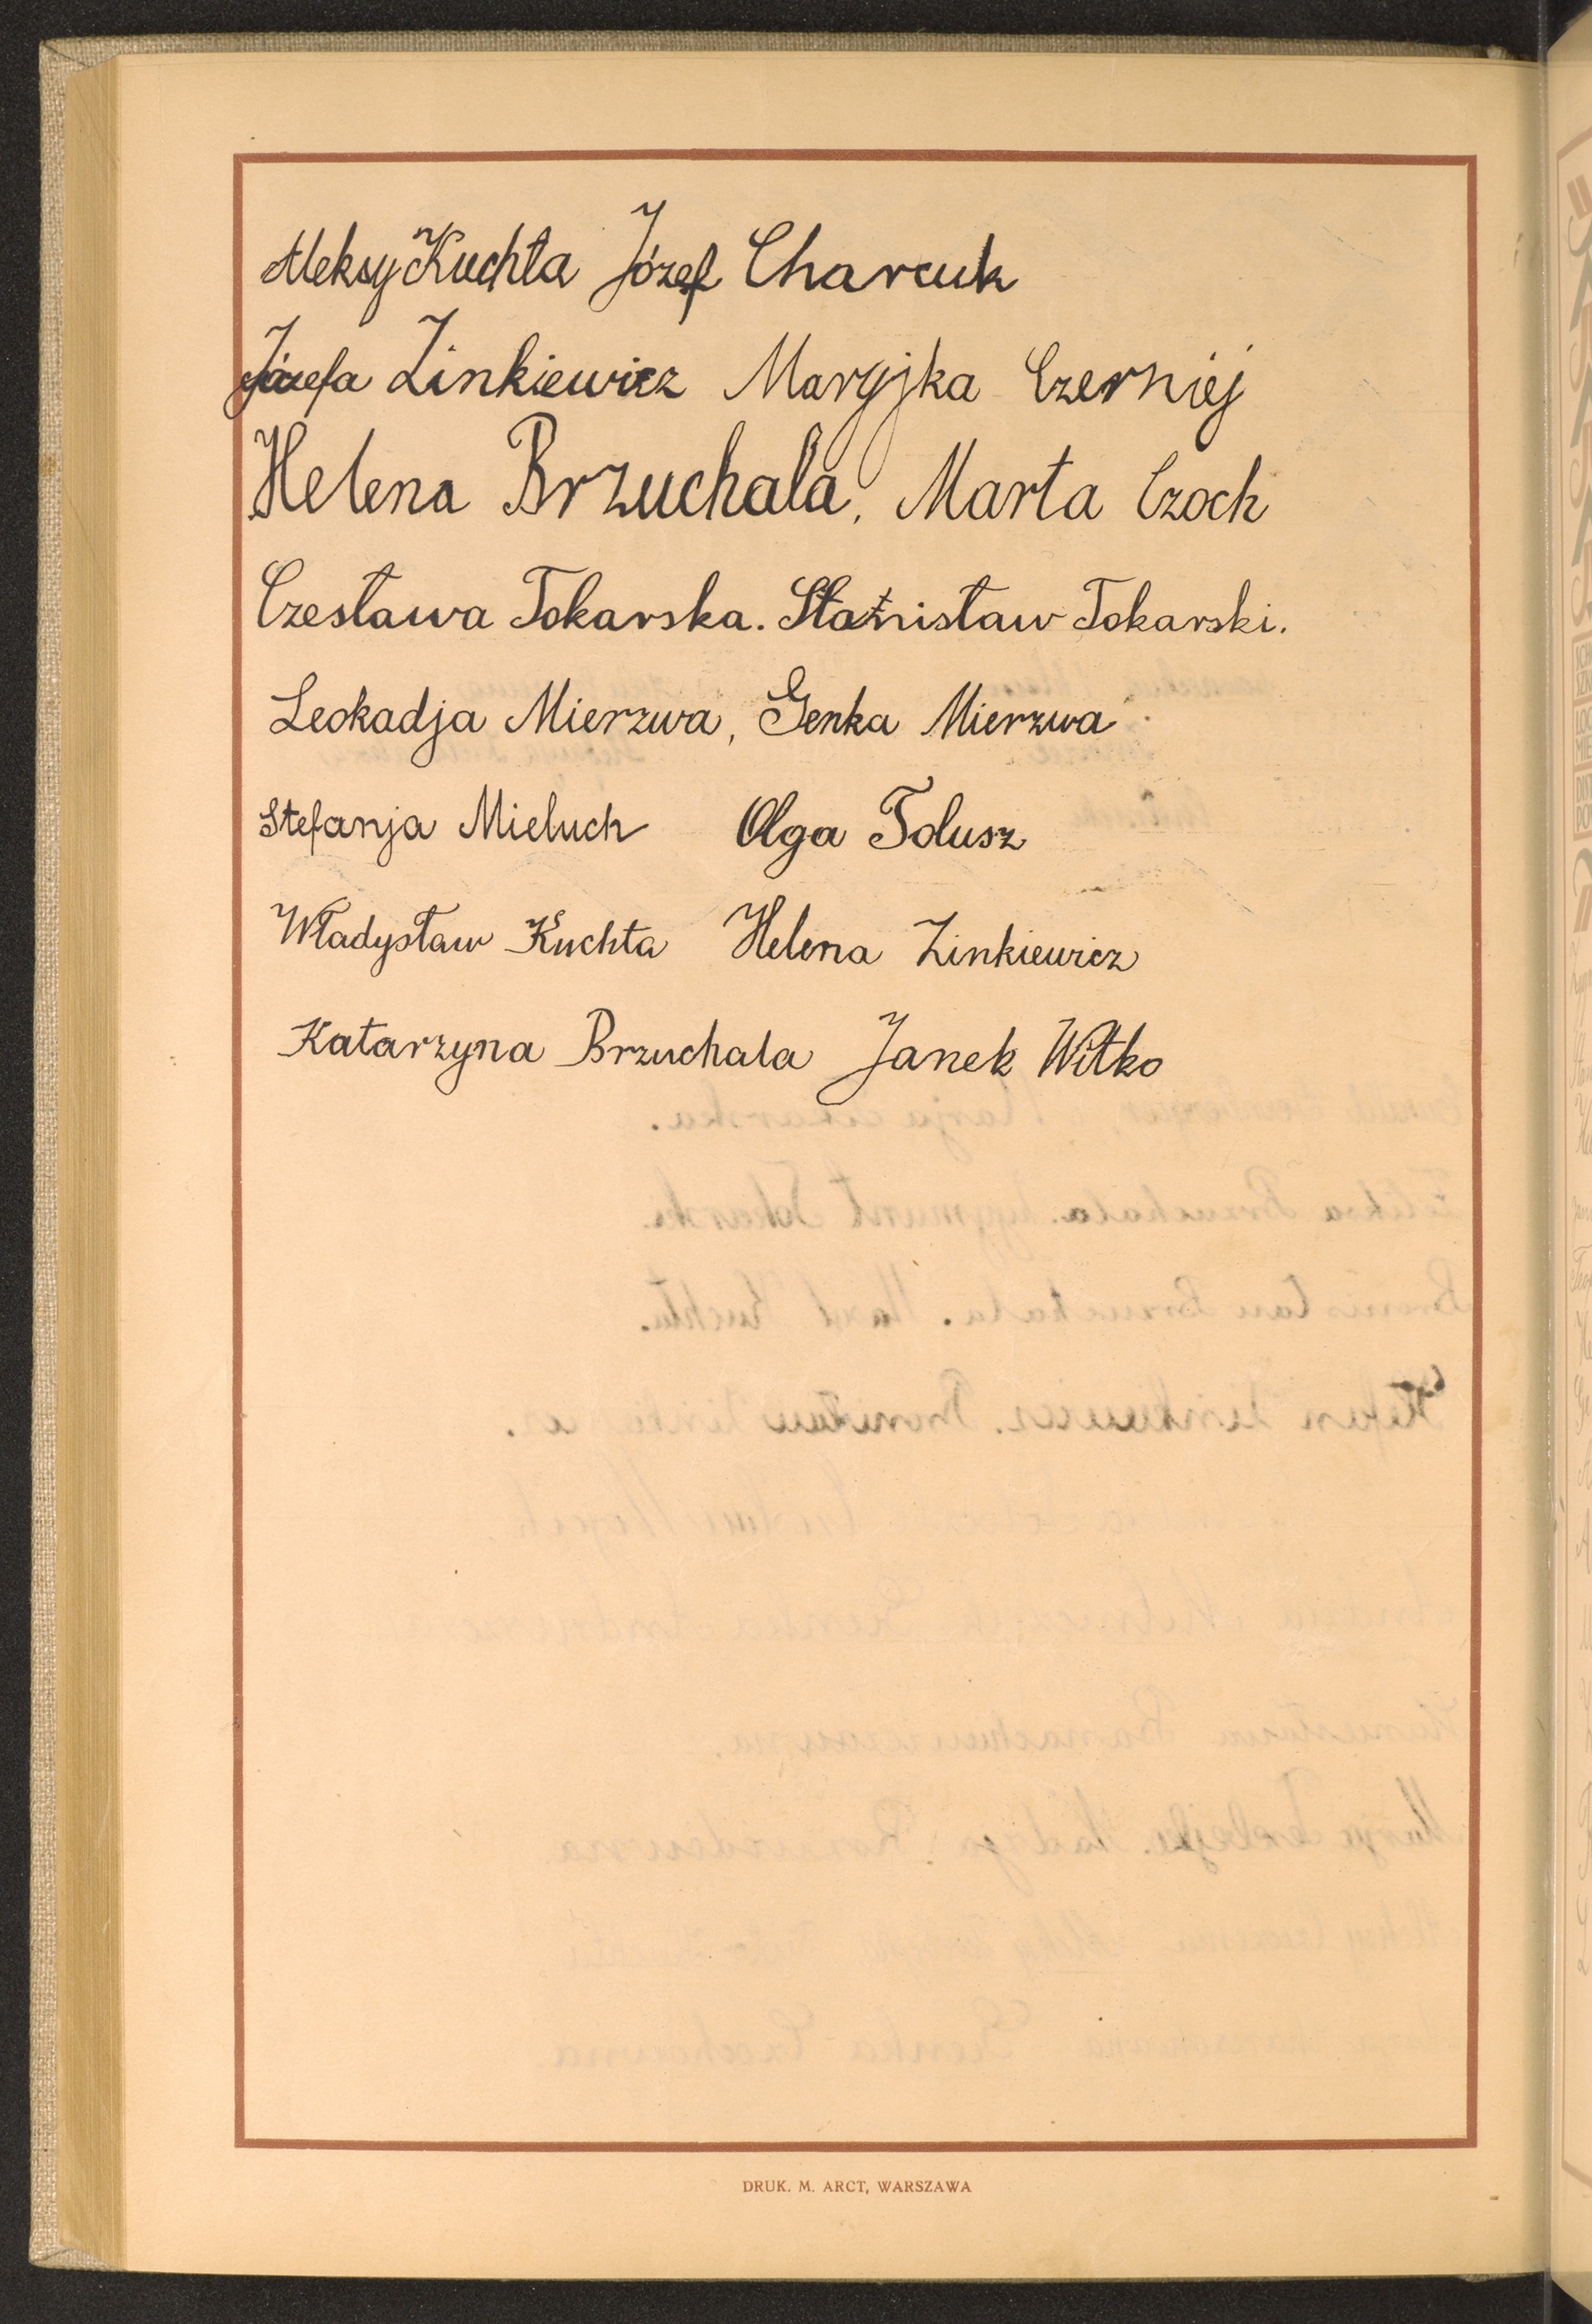 Aleksy Kuchta Józef Charcuk
Józefa Zinkiewicz Maryjka Czerniej
Helena Brzuchala, Marta Czoch
Czesława Tokarska. Stanisław Tokarski.
Leokadja Mierzwa, Genka Mierzwa
Stefanja Mieluch Olga Tolusz
Władysław Kuchta Helena Zinkiewicz
Katarzyna Brzuchala Janek Witko
DRUK. M. ARCT, WARSZAWA